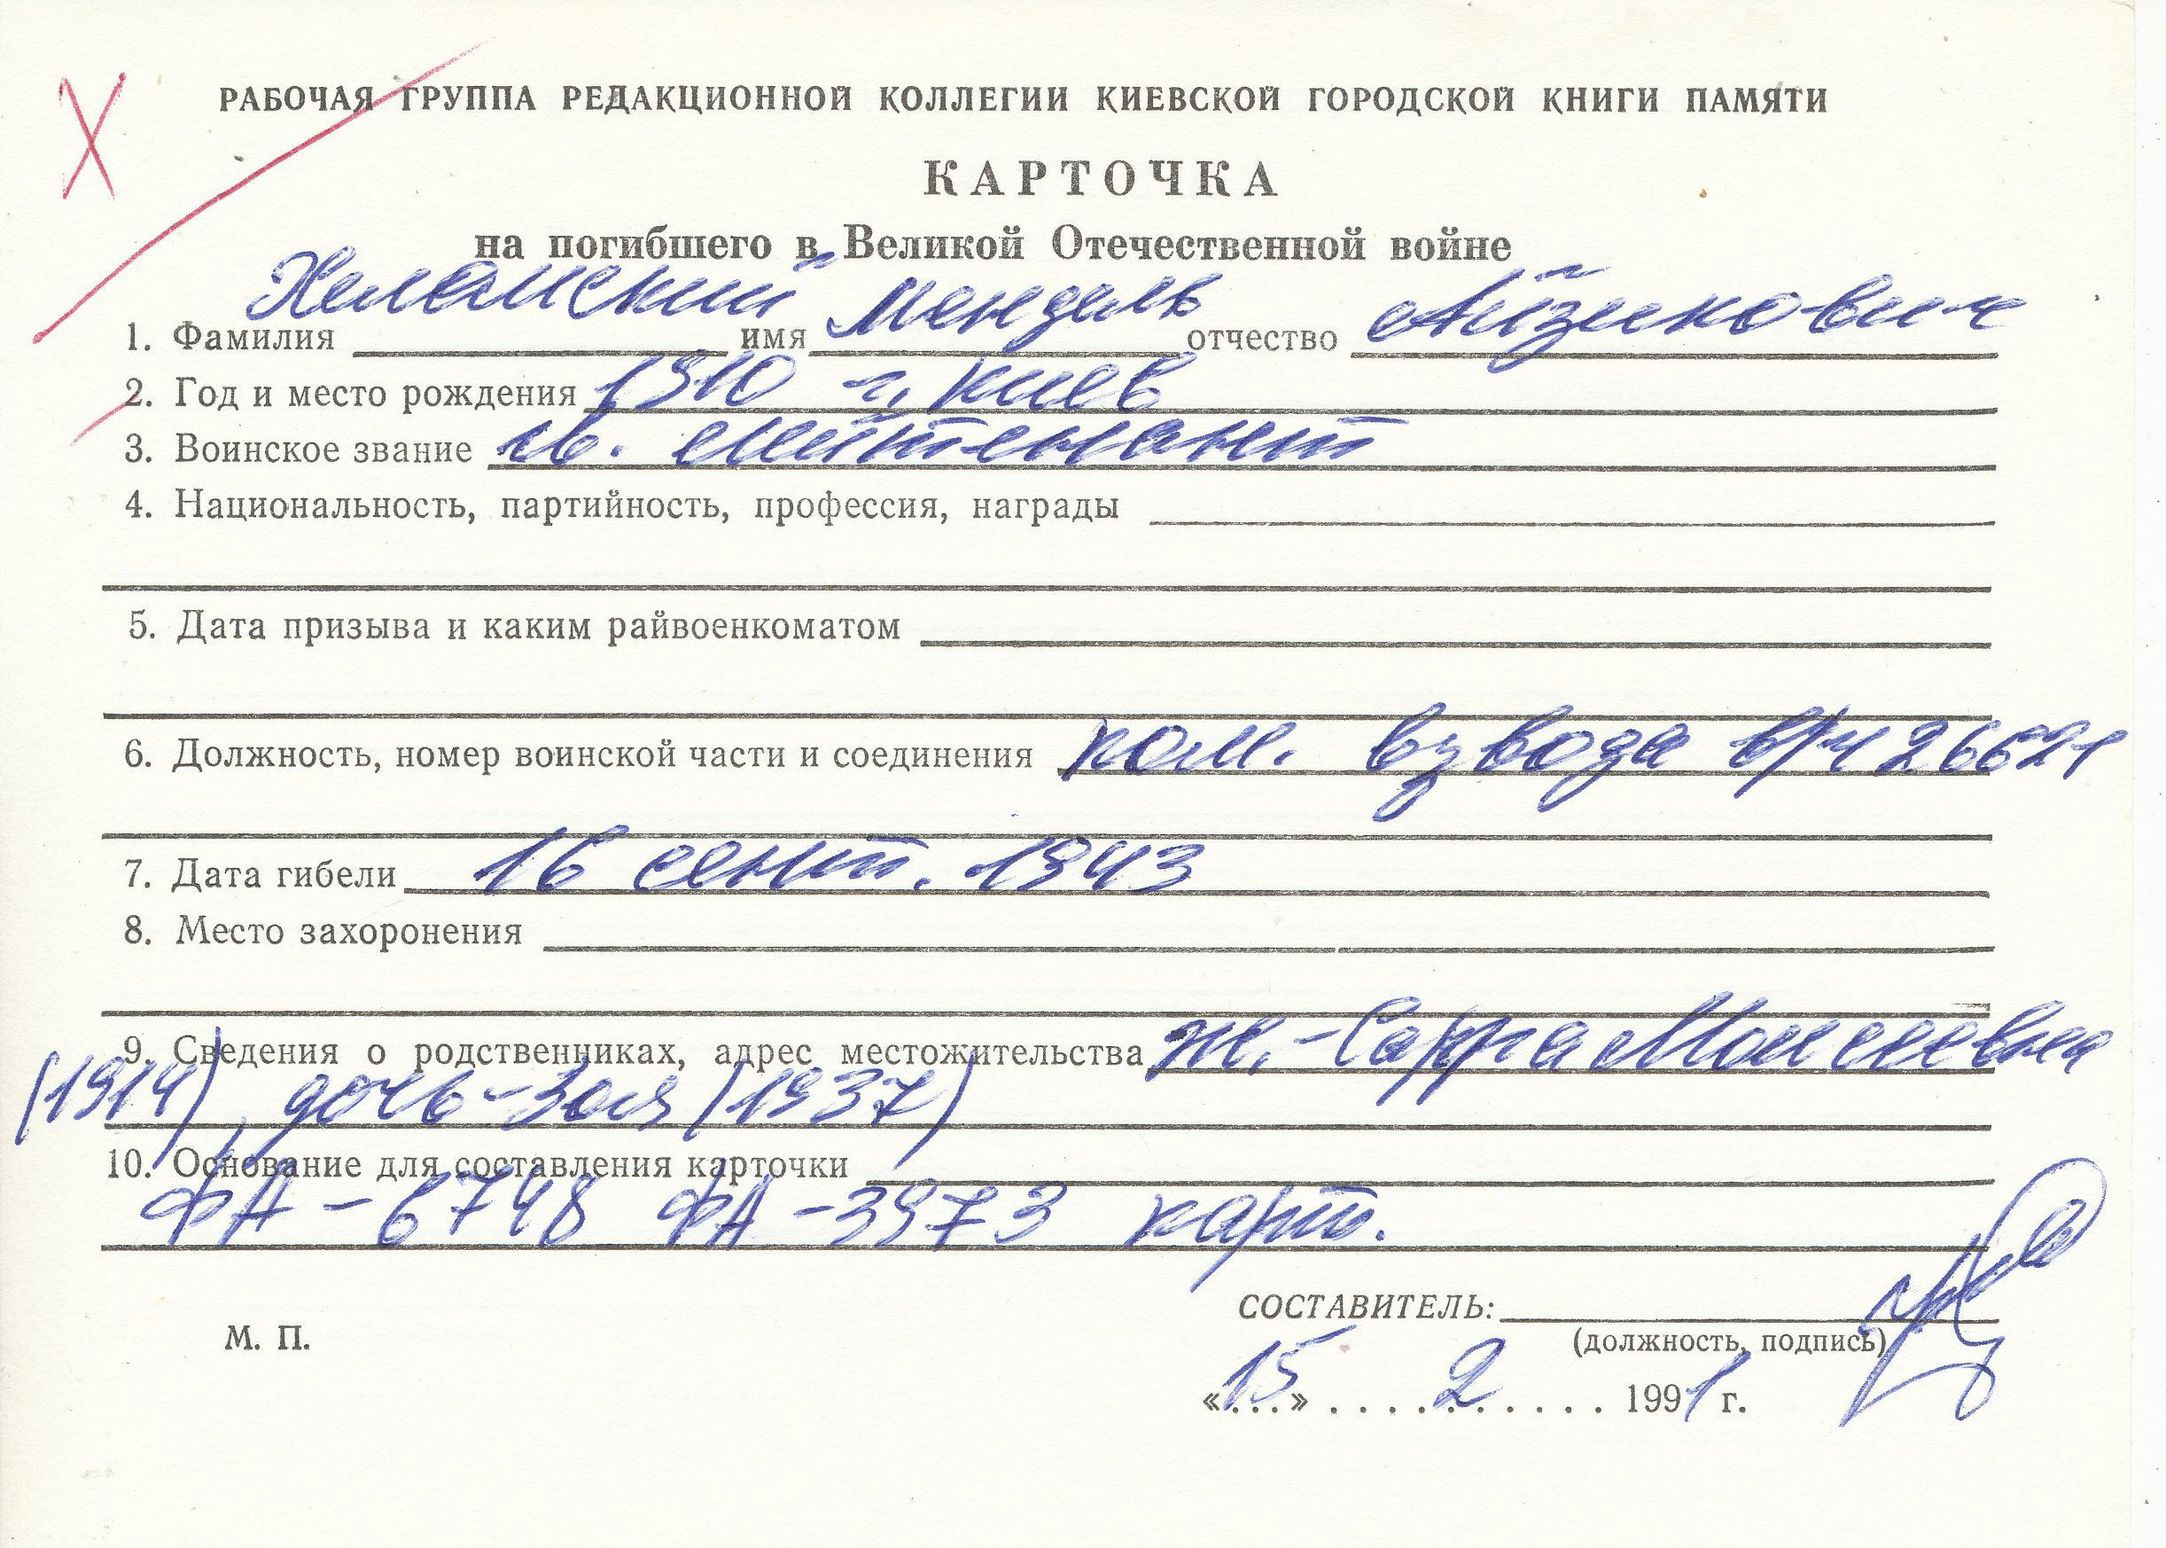 РАБОЧАЯ ГРУППА РЕДАКЦИОННОЙ КОЛЛЕГИИ КИЕВСКОЙ ГОРОДСКОЙ КНИГИ ПАМЯТИ
КАРТОЧКА
на погибшего в Великой Отечественной войне
1. Фамилия Хелемский имя Мендель отчество Айзикович
2. Год и место рождения 1910 г, Киев
3. Воинское звание гв. лейтенант
4. Национальность, партийность, профессия, награды
5. Дата призыва и каким райвоенкоматом
6. Должность, номер воинской части и соединения ком. взвода в/ч 26621
7. Дата гибели 16 сент. 1943
8. Место захоронения
9. Сведения о родственниках, адрес местожительства ж. - Сарра Моисеевна
(1914), дочь - Зоя (1937)
10. Основание для составления карточки
ФА - 6748 ФА - 3973 карт.
СОСТАВИТЕЛЬ:
М. П.
(должность, подпись)
«15» 2 1991 г.